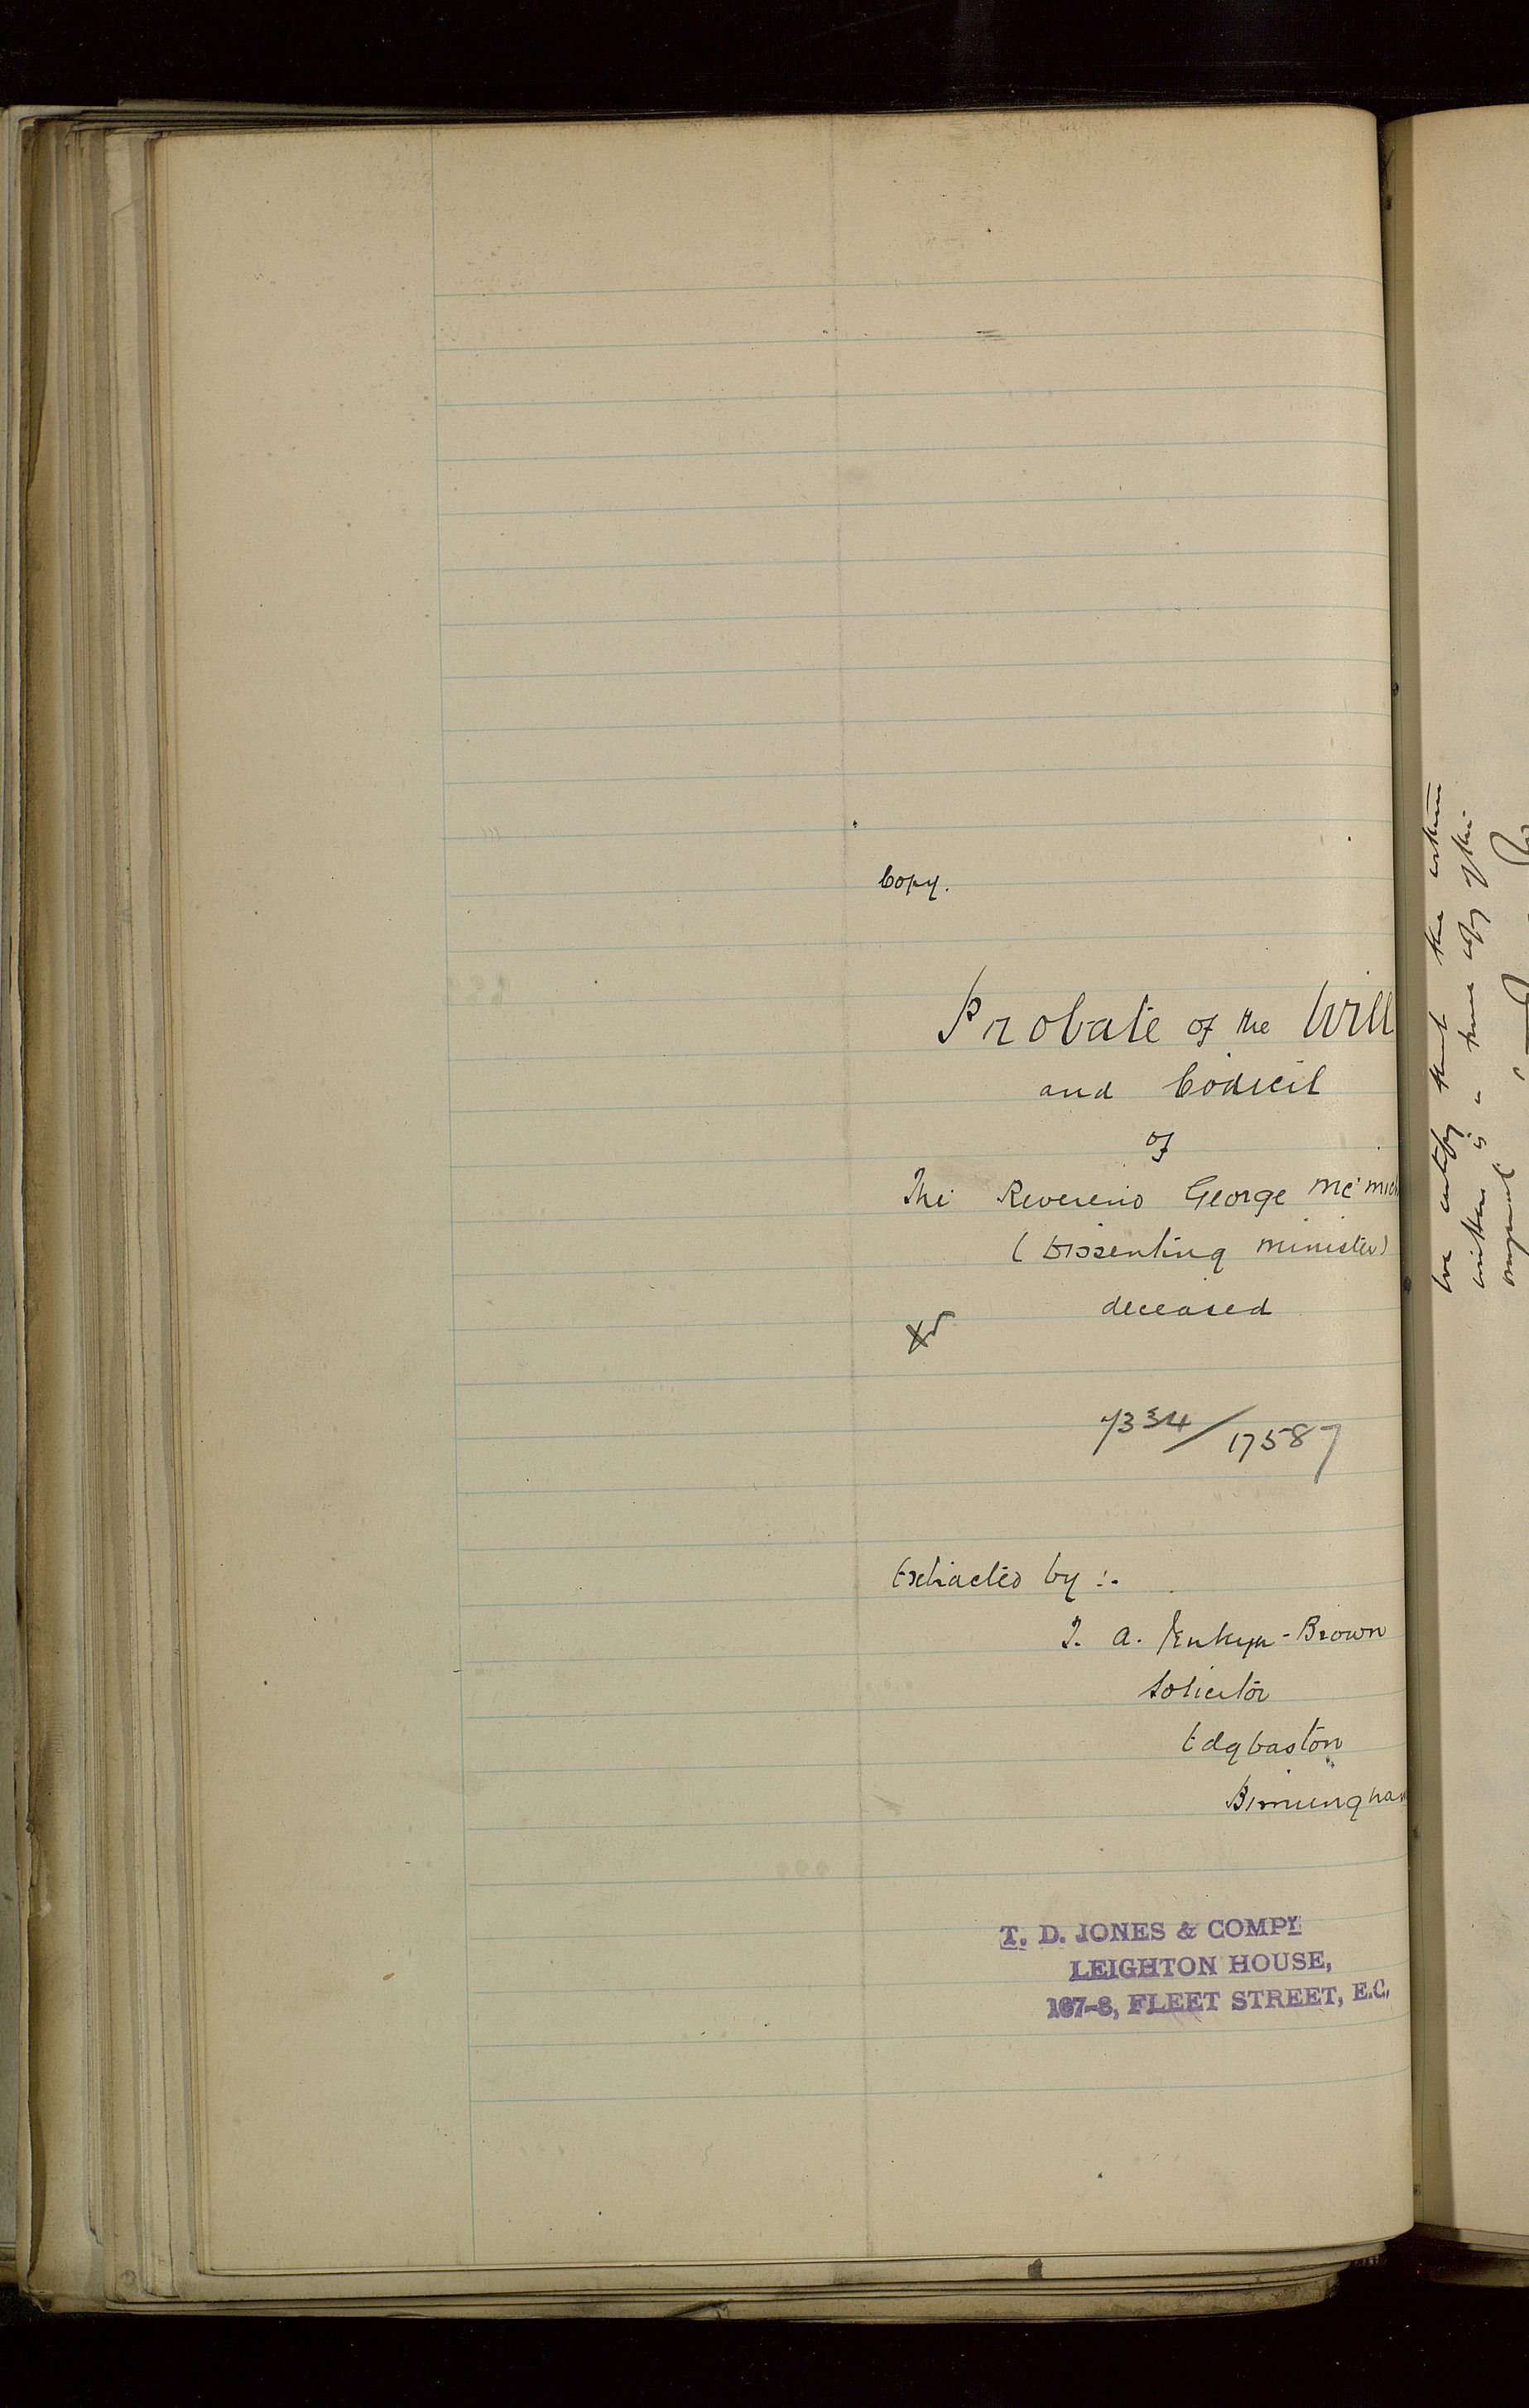 Copy.
Probate of the Will
and Codicil
of
The Reverend George Mc Mich
(Dissenting Minister)
deceased
7334/17587
Extracted by :-
J. A. Jenkyn-Brown
Solicitor
Edgbaston
Birmingham
T. D. JONES & COMPY
LEIGHTON HOUSE,
167-8, FLEET STREET, E.C.
We certify that the within
written is a true copy of the
original